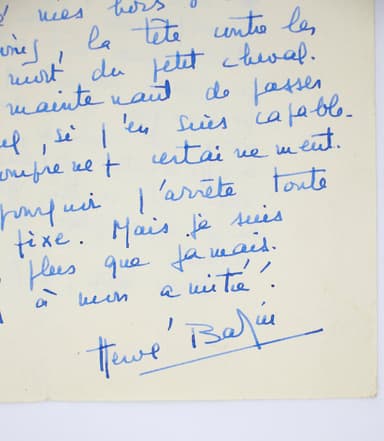 mes hors
la tête contre les
mort du petit cheval.
maintenant de passer
si j'en suis capable.
certainement.
pourquoi j'arrête toute
fixe. Mais je suis
plus que jamais.
à mon amitié!
Hervé Bazin